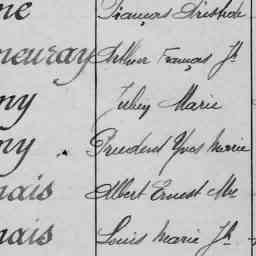 ne François Aristide
neuray Arthur François Jh
ny Juley Marie
ny Prudent Yves Marie
nais Albert Ernest Mie
nais Louis Marie Jh